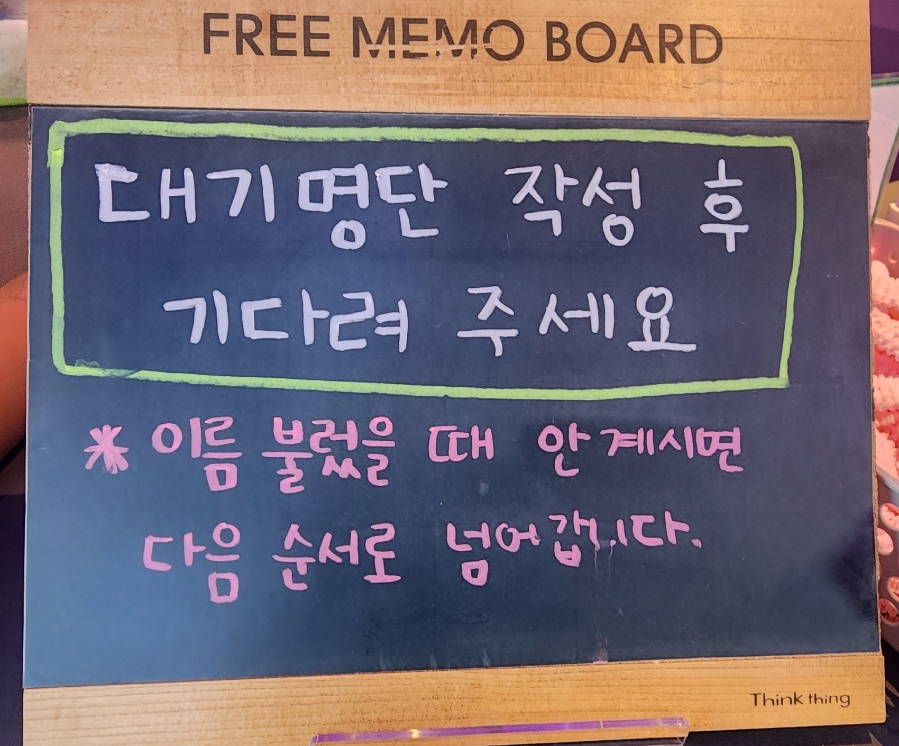 FREE MEMO BOARD
대기명단 작성 후
기다려 주세요
* 이름 불렀을 때 안 계시면
다음 순서로 넘어갑니다.
Think thing